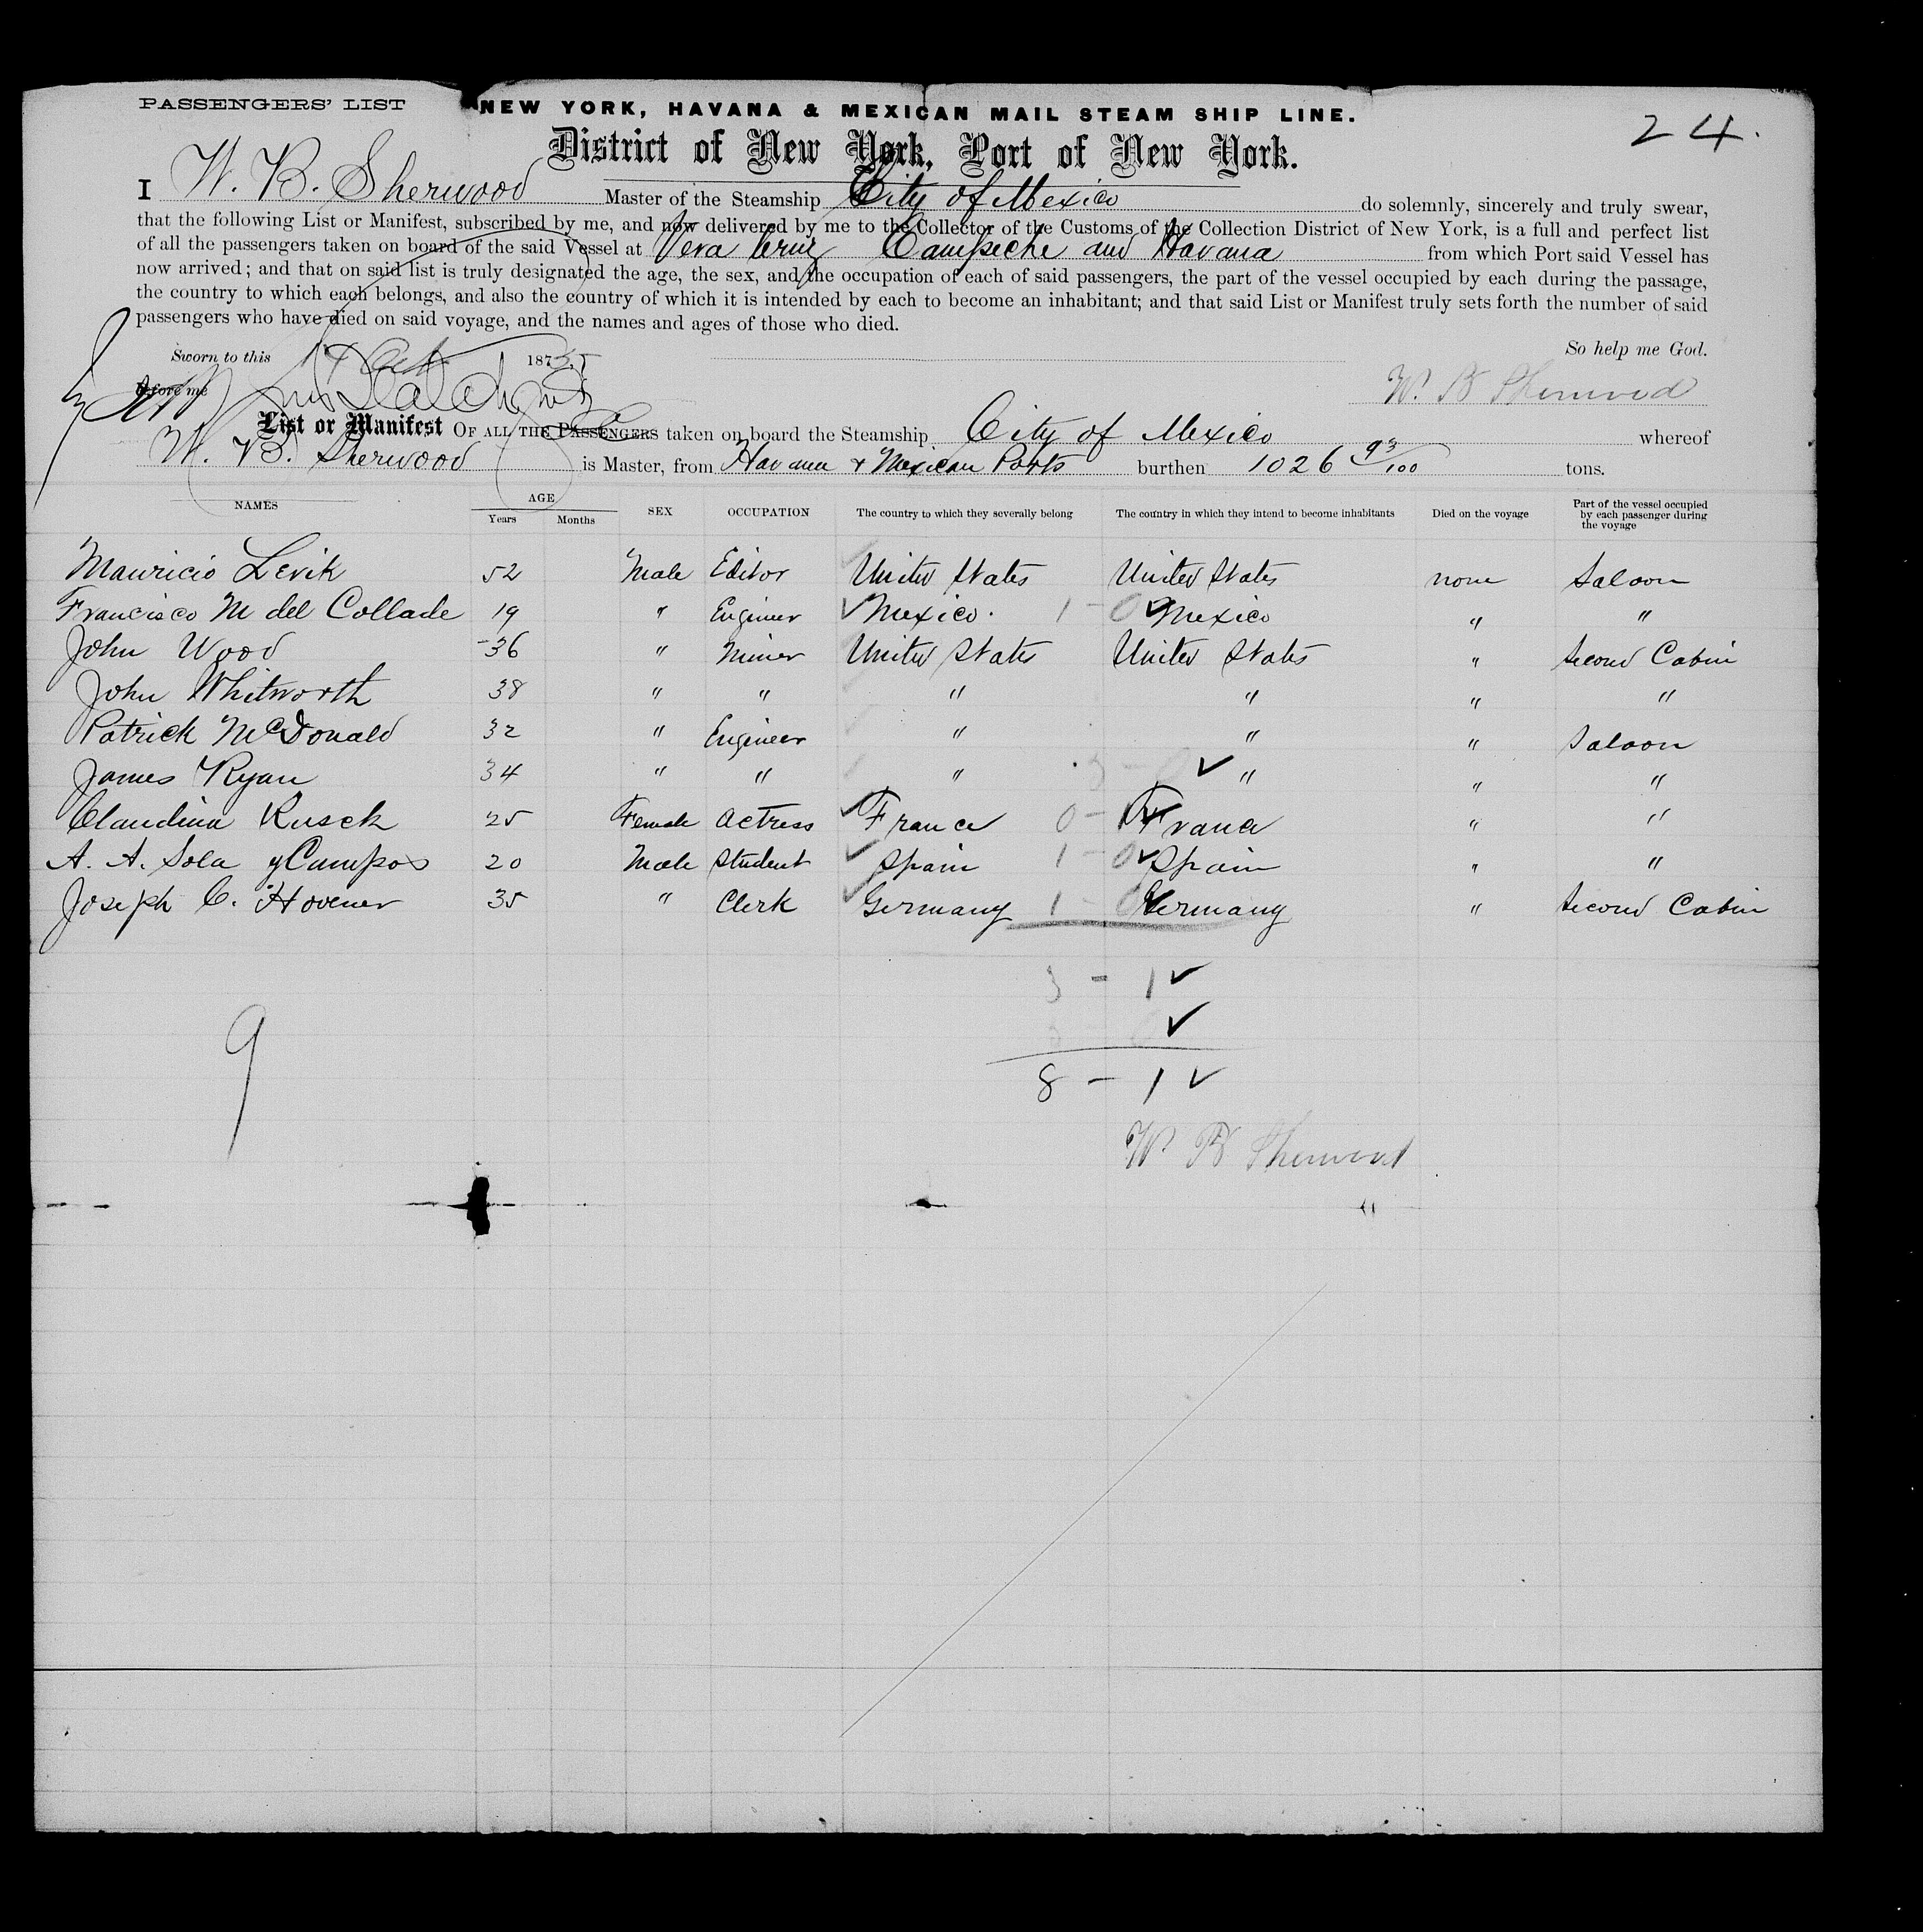 PASSENGERS' LIST
NEW YORK, HAVANA & MEXICAN MAIL STEAM SHIP LINE.
24.
District of New York, Port of New York.
I W. B. Sherwood Master of the Steamship City of Mexico do solemnly, sincerely and truly swear,
that the following List or Manifest, subscribed by me, and now delivered by me to the Collector of the Customs of the Collection District of New York, is a full and perfect list
of all the passengers taken on board of the said Vessel at Vera Cruz Campeche and Havana from which Port said Vessel has
now arrived; and that on said list is truly designated the age, the sex, and the occupation of each of said passengers, the part of the vessel occupied by each during the passage,
the country to which each belongs, and also the country of which it is intended by each to become an inhabitant; and that said List or Manifest truly sets forth the number of said
passengers who have died on said voyage, and the names and ages of those who died.
Sworn to this Oct 187 So help me God.
before me W. B Sherwood
List or Manifest OF ALL THE PASSENGERS taken on board the Steamship City of Mexico whereof
W. B. Sherwood is Master, from Havana & Mexican Ports burthen 1026 93/100 tons.
NAMES AGE Years Months SEX OCCUPATION The country to which they severally belong The country in which they intend to become inhabitants Died on the voyage Part of the vessel occupied by each passenger during the voyage
Mauricio Levik 52 Male Editor United States United States none Saloon
Francisco M del Collade 19 " Engineer Mexico. 1 - 0 Mexico " "
John Wood 36 " Miner United States United States " Second Cabin
John Whitworth 38 " " " " " "
Patrick McDonald 32 " Engineer " " " Saloon
James Ryan 34 " " " " " "
Claudina Rusck 25 Female Actress France 0 - 1 France " "
A. A. Sola y Campos 20 Male Student Spain 1 - 0 Spain " "
Joseph C. Hovener 35 " Clerk Germany 1 - 0 Germany " Second Cabin
3 - 1 ✓
✓
9
8 - 1 ✓
W. B Sherwood